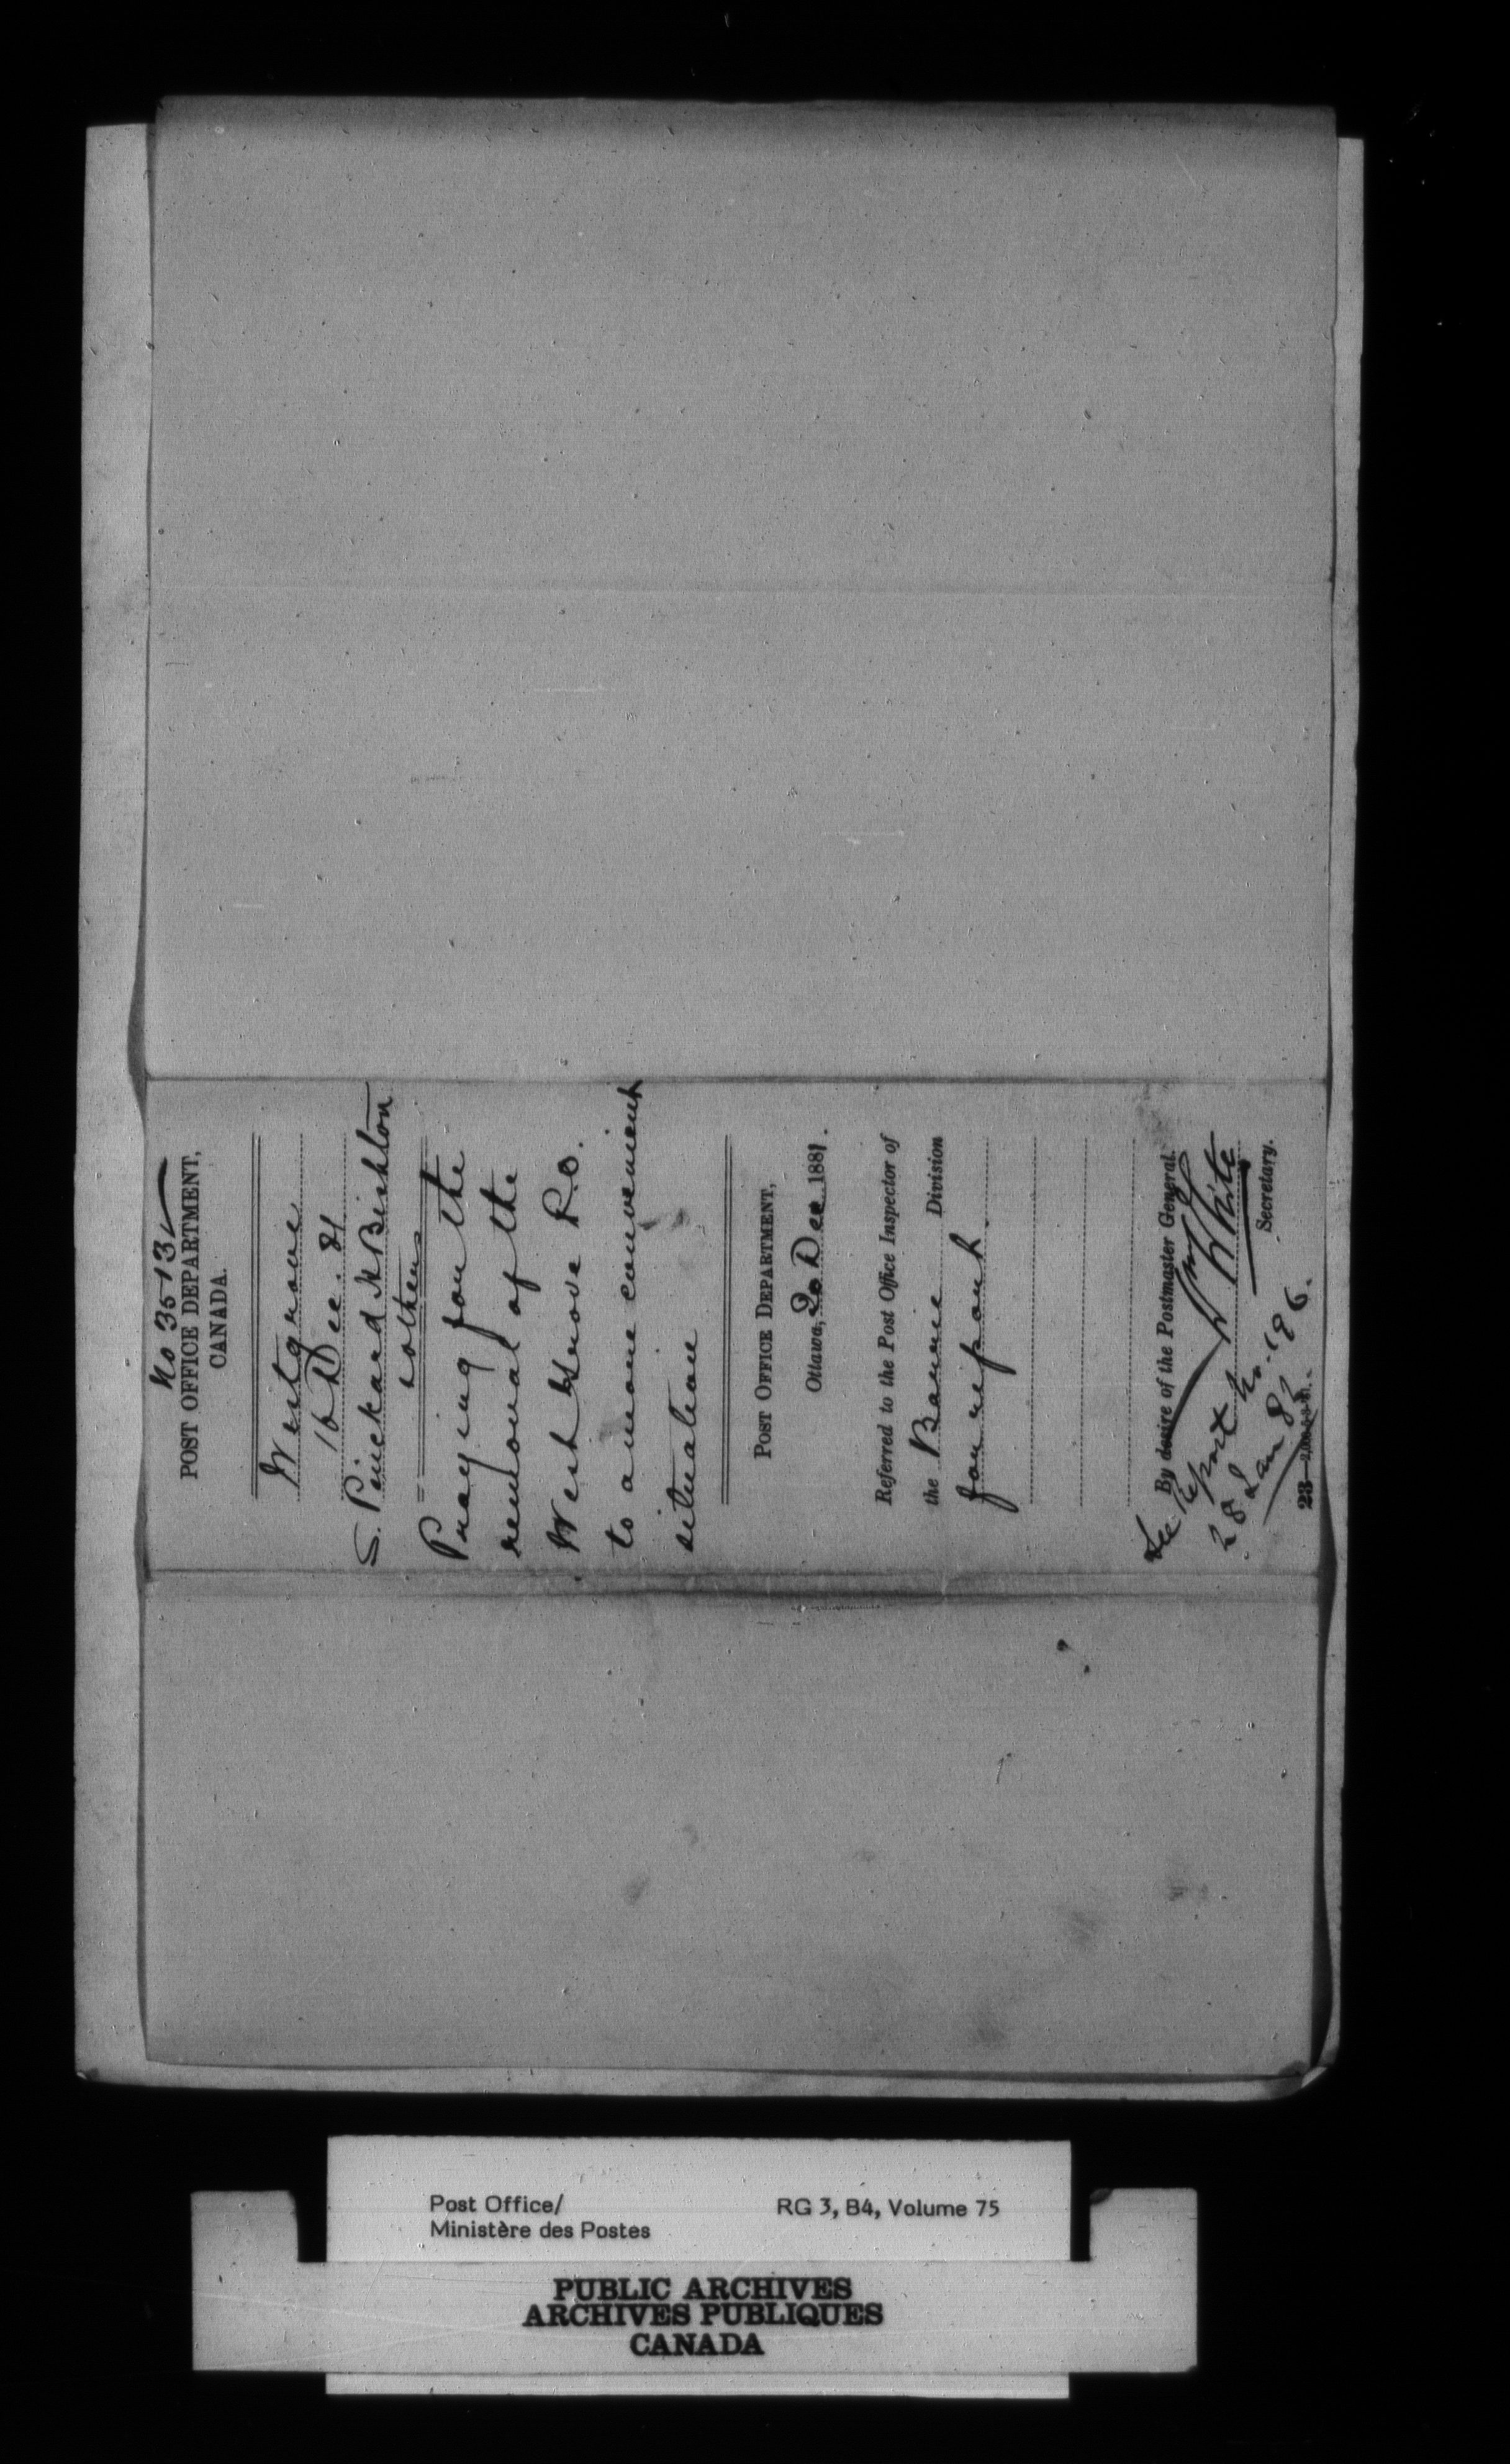 No 3513
POST OFFICE DEPARTMENT,
CANADA.
Westgrove
16 Dec. 81
S. Pinckard H Bishton
& others
Praying for the
removal of the
West Grove P.O.
to a more convenient
situation
POST OFFICE DEPARTMENT,
Ottawa, 20 Dec 1881.
Referred to the Post Office Inspector of
the Barrie Division
for report.
By desire of the Postmaster General.
White
Secretary.
See Report No. 196.
28 Jan 82
23—2,000-8-3-81.
Post Office/
Ministère des Postes
RG 3, B4, Volume 75
PUBLIC ARCHIVES
ARCHIVES PUBLIQUES
CANADA